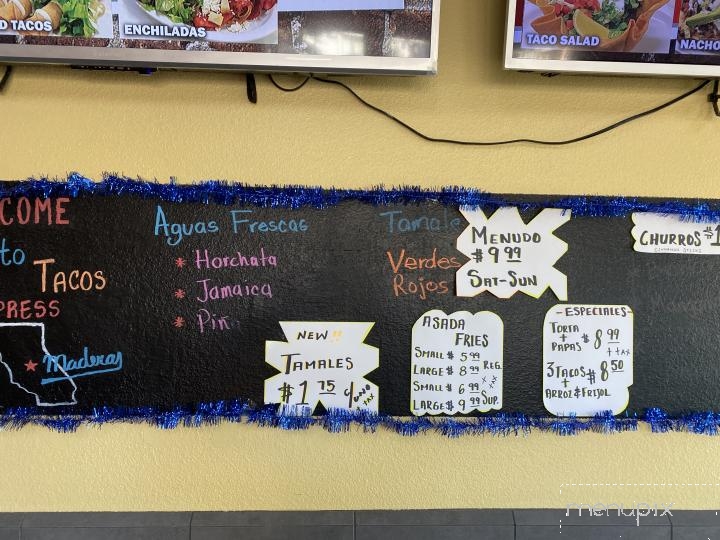 D TACOS
ENCHILADAS
TACO SALAD
NACHO
COME
to
TACOS
PRESS
Maderas
Aguas Frescas
* Horchata
* Jamaica
* Piñ
Tamale
Verdes
Rojos
MENUDO
$9.99
SAT-SUN
CHURROS $1
CINNAMON STICKS
NEW!!
TAMALES
$1.75 c/uno
TAX
ASADA
FRIES
SMALL $5.99
LARGE $8.99 REG.
SMALL $6.99
LARGE $9.99 SUP.
-ESPECIALES-
TORTA
+
PAPAS $8.99
+ TAX
3 TACOS
+ $8.50
ARROZ & FRIJOL
menupix